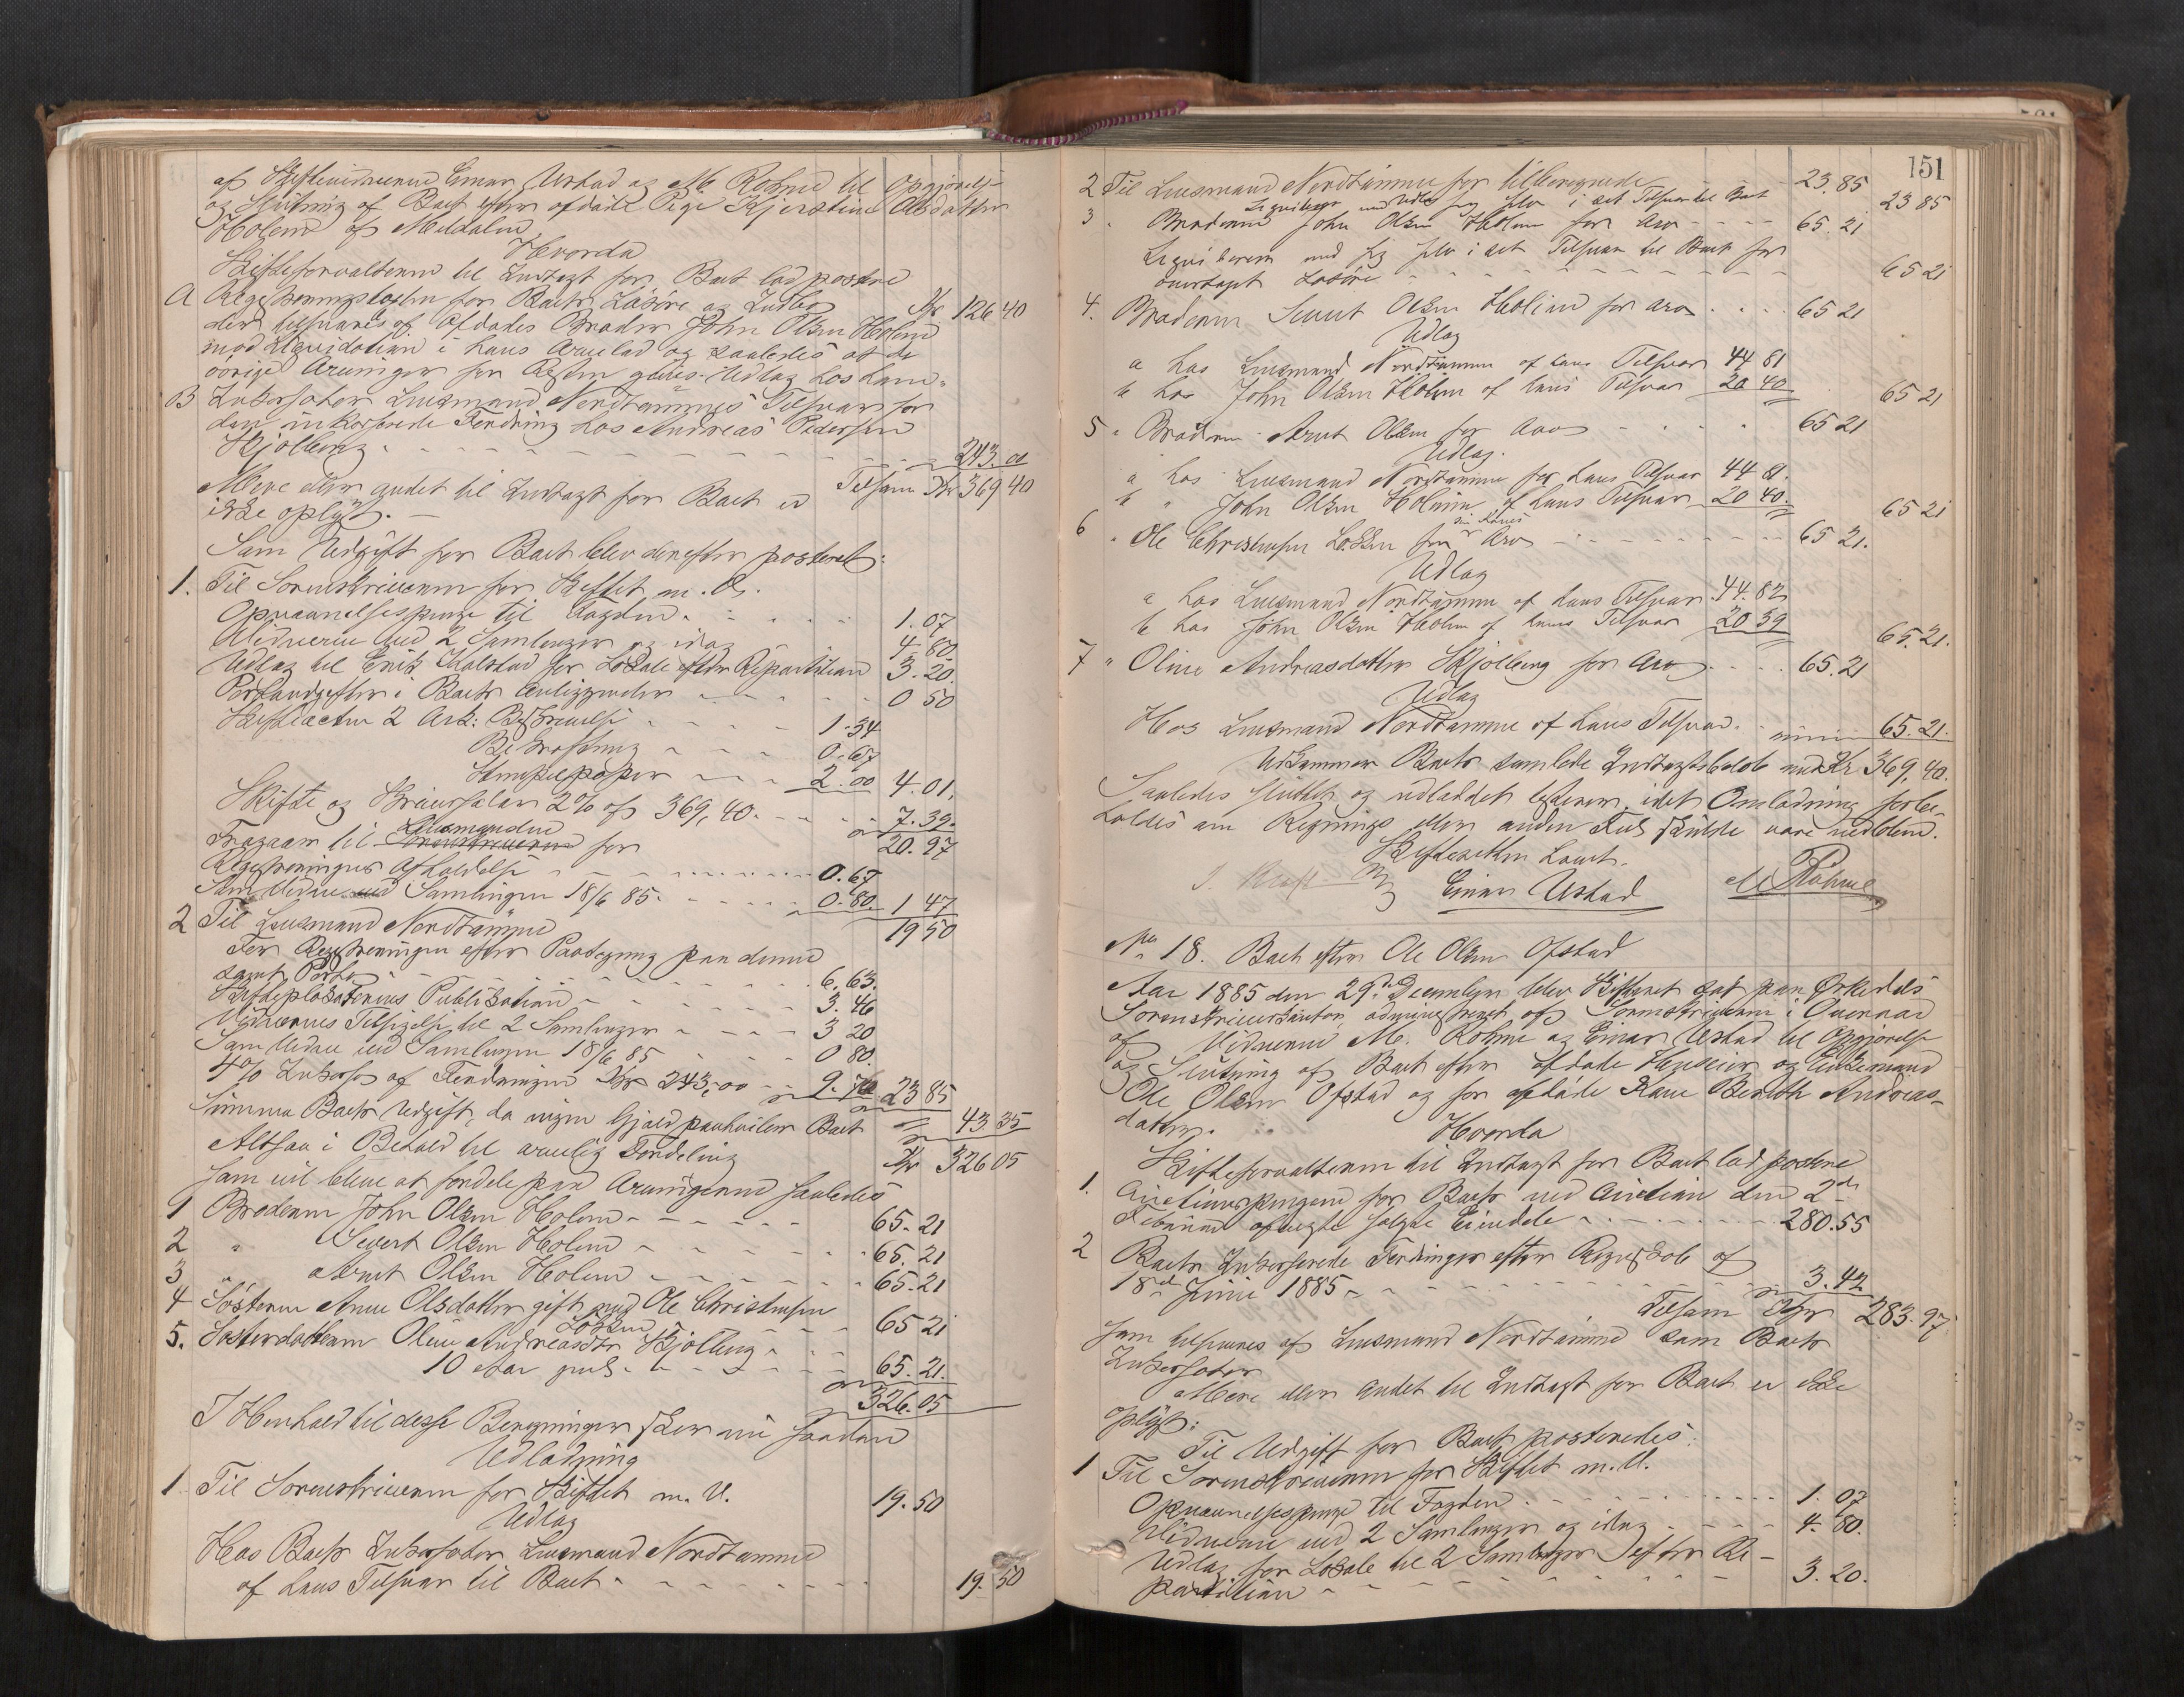 af Skiftevidnerne Einar Ustad og M. Rohme til Opgjørelse
og Slutning af Boet efter afdøde Pige Kjerstine Olsdatter
Holem af Meldalen.
Hvorda
Skifteforvalteren til Indtægt for Boet lod postere
A Registreringsbeløb for Boets Løsøre og Indbo Kr 126 40
der tilsvares af Afdødes Broder John Olsen Holem
mod Liquidation i hans Arvelod og saaledes at de
øvrige Arvinger for Resten gives Udlæg hos ham.
B Inkassator Lensmand Nordtømmes Tilsvar for
den inkasserede Fordring hos Andreas Pedersen
Skjølberg 243.00
Tilsam Kr 369 40
Mere eller andet til Indtægt for Boet er
ikke oplyst.
Som Udgift for Boet blev derefter posteret:
1. Til Sorenskriveren for Skiftet m. V.
Opnævnelsespenge til Fogden 1.07
Vidnerne ved 2 Samlinger og idag 4 80
Udlæg til Erik Kalstad for Lokale efter Repartition 3.20.
Portoudgifter i Boets Anliggender 0 50
Skifteacten 2 Ark: Beskrivelse 1.34
Bekræftning 0.67
Stempelpapir 2.00 4.01.
Skifte og Skriversalær 2% af 369,40. 7.39.
20.97
Fragaar til Lensmanden for
Registreringens Afholdelse 0.67
Som Vidne ved Samlingen 18/6 85. 0.80. 1 47
19 50
2 Til Lensmand Nordtømme
For Registreringen efter Paategning paa denne
samt Porto 6.63.
Skifteplakatens Publikation 3.46
Vidnernes Tilsigelse til 2 Samlinger 3 20
Som Vidne ved Samlingen 18/6 85 0 80.
4% Inkasso af Fordringen Kr 243,00 9.76 23 85
Summa Boets Udgift, da ingen Gjæld paahviler Boet 43 35
Altsaa i Behold til arvelig Fordeling Kr 326 05
som vil blive at fordele paa Arvingerne saaledes
1 Broderen John Olsen Holem 65.21
2 " Sivert Olsen Holem 65.21
3 " Arnt Olsen Holem 65.21
4 Søsteren Anne Olsdatter gift med Ole Christensen
Løkken 65 21
5. Søsterdatteren Oline Andreasdtr Skjølberg
10 Aar gml. 65.21.
326.05
I Henhold til disse Beregninger sker nu saadan
Udlodning
1 Til Sorenskriveren for Skiftet m. V. 19.50
Udlæg
Hos Boets Inkassator Lensmand Nordtømme
af hans Tilsvar til Boet 19.50
151
2 Til Lensmand Nordtømme for tilberegnede 23.85
Liquiderer med sig selv i sit Tilsvar til Boet 23 85
3 " Broderen John Olsen Holem for Arv 65.21
Liquiderer med sig selv i sit Tilsvar til Boet for
overtaget Løsøre 65 21
4. Broderen Sivert Olsen Holem for Arv 65 21
Udlæg
a hos Lensmand Nordtømme af hans Tilsvar 44 81
b hos John Olsen Holem af hans Tilsvar 20 40 65 21
5 " Broderen Arnt Olsen for Arv 65 21
Udlæg.
a hos Lensmand Nordtømme for hans Tilsvar 44 81.
b " John Olsen Holem af hans Tilsvar 20 40. 65 21
6 " Ole Christensen Løkken for sin Kones Arv 65 21.
Udlæg
a hos Lensmand Nordtømme af hans Tilsvar 44.82
b hos John Olsen Holem af hans Tilsvar 20 39 65.21.
7 " Oline Andreasdatter Skjølberg for Arv 65.21
Udlæg
Hos Lensmand Nordtømme af hans Tilsvar 65.21.
Udkommer Boets samlede Indtægtsbeløb med Kr 369,40.
Saaledes sluttet og udloddet idet Omlodning forbe-
holdes om Regnings eller anden Feil skulde være indløben.
Skifteretten hævet.
Einar Ustad M Rohme
No 18. Boet efter Ole Olsen Ofstad
Aar 1885 den 29de December blev Skifteret sat paa Orkedals
Sorenskriverkontor, administreret af Sorenskriveren i Overvær
af Vidnerne M. Rohme og Einar Ustad til Opgjørelse
og Slutning af Boet efter afdøde Husmand og Enkemand
Ole Olsen Ofstad og før afdøde Kone Berith Andreas-
datter. Hvorda
Skifteforvalteren til Indtægt for Boet lod postere
1. Auctionspengene for Boets ved Auction den 2den
Februar solgte Eiendele 280.55
2 Boets Inkasserede Fordringer efter Regnskab af
18de Juni 1885 3.42
Tilsam Kr 283.97
som tilsvares af Lensmand Nordtømme som Boets
Inkassator
Mere eller andet til Indtægt for Boet er ikke
oplyst.
Til Udgift for Boet posteredes:
1 Til Sorenskriveren for Skiftet m. V.
Opnævnelsespenge til Fogden 1.07
Vidnerne ved 2 Samlinger og idag 4.80.
Udlæg for Lokale til 2 Samlinger efter Re-
partition 3.20.